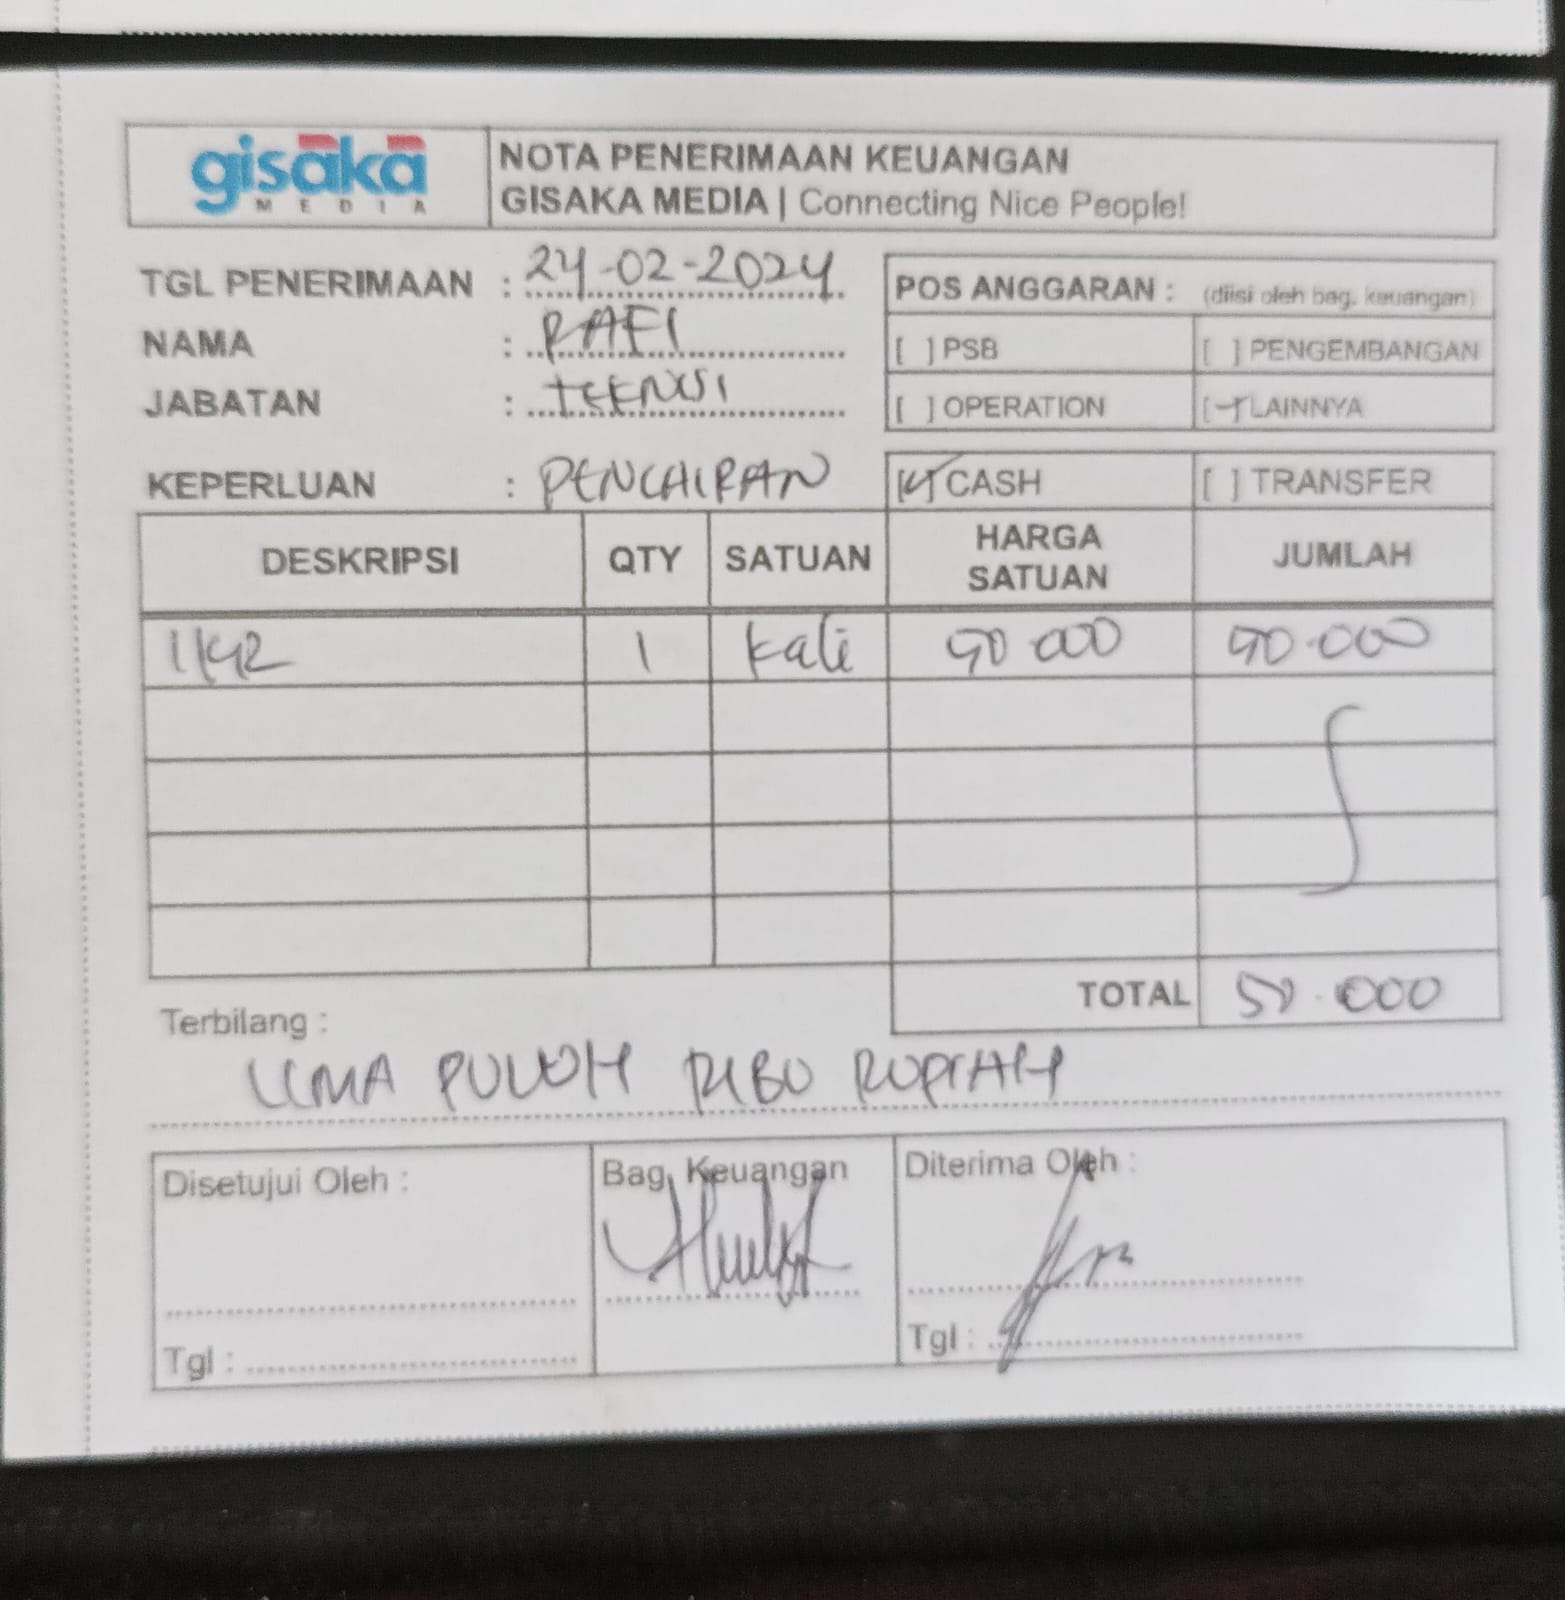 gisaka
MEDIA
NOTA PENERIMAAN KEUANGAN
GISAKA MEDIA | Connecting Nice People!
TGL PENERIMAAN : 24-02-2024
NAMA : RAFI
JABATAN : TEKNISI
POS ANGGARAN : (diisi oleh bag. keuangan)
[ ] PSB [ ] PENGEMBANGAN
[ ] OPERATION [✓] LAINNYA
KEPERLUAN : PENCAIRAN
[✓] CASH [ ] TRANSFER
DESKRIPSI QTY SATUAN HARGA SATUAN JUMLAH
1 Kali 50 000 50.000
TOTAL 50.000
Terbilang :
LIMA PULUH RIBU RUPIAH
Disetujui Oleh : Bag. Keuangan Diterima Oleh :
Tgl : Tgl :